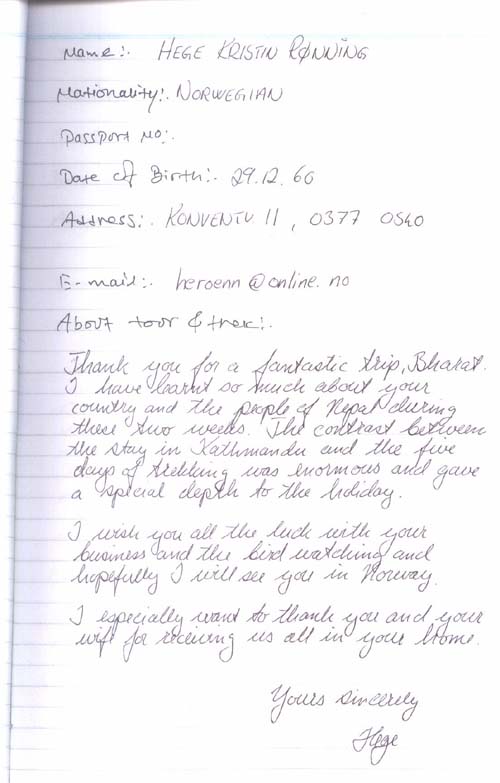 Name:. HEGE KRISTIN RØNNING
Nationality:. NORWEGIAN
Passport No:.
Date of Birth:. 29.12.60
Address:. KONVENTV. 11, 0377 OSLO
E-mail:. heroenn@online.no
About tour & trek:.
Thank you for a fantastic trip, Bharat.
I have learnt so much about your
country and the people of Nepal during
these two weeks. The contrast between
the stay in Kathmandu and the five
days of trekking was enormous and gave
a special depth to the holiday.
I wish you all the luck with your
business and the bird watching and
hopefully I will see you in Norway.
I especially want to thank you and your
wife for receiving us all in your home.
Yours sincerely
Hege